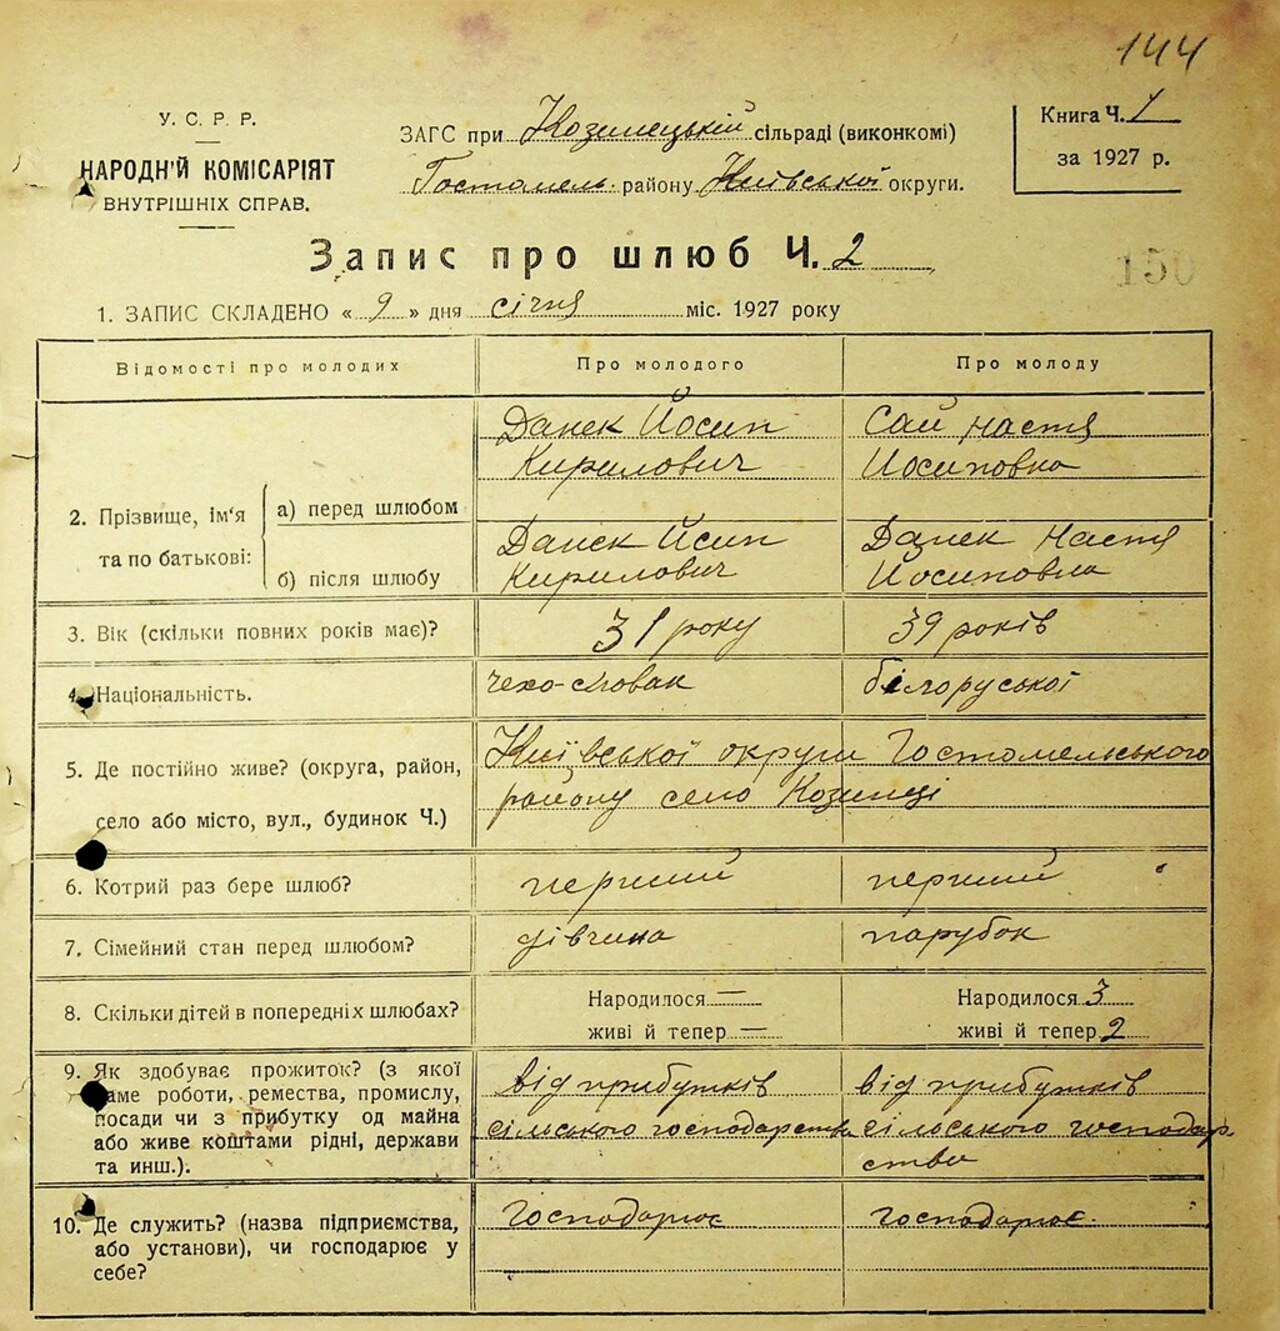 144
У. С. Р. Р.
НАРОДН'Й КОМІСАРІЯТ
ВНУТРІШНІХ СПРАВ.
ЗАГС при Козинецькій сільраді (виконкомі)
Гостомель. району Київської округи.
Книга Ч. 1
за 1927 р.
Запис про шлюб Ч. 2
150
1. ЗАПИС СКЛАДЕНО « 9 » дня січня міс. 1927 року
Відомості про молодих
Про молодого
Про молоду
2. Прізвище, ім'я
та по батькові:
а) перед шлюбом
б) після шлюбу
Данек Йосип
Кирилович
Сай Настя
Йосиповна
Данек Йсип
Кирилович
Данек Настя
Йосиповна
3. Вік (скільки повних років має)?
31 року
39 років
4. Національність.
чехо-словак
білоруської
5. Де постійно живе? (округа, район,
село або місто, вул., будинок Ч.)
Київської округи Гостомельського
району село Козинці
6. Котрий раз бере шлюб?
перший
перший
7. Сімейний стан перед шлюбом?
дівчина
парубок
8. Скільки дітей в попередніх шлюбах?
Народилося —
живі й тепер —
Народилося 3
живі й тепер 2
9. Як здобуває прожиток? (з якої
саме роботи, ремества, промислу,
посади чи з прибутку од майна
або живе коштами рідні, держави
та инш.).
від прибутків
сільського господарства
від прибутків
сільського господар
ства
10. Де служить? (назва підприємства,
або установи), чи господарює у
себе?
господарює
господарює.